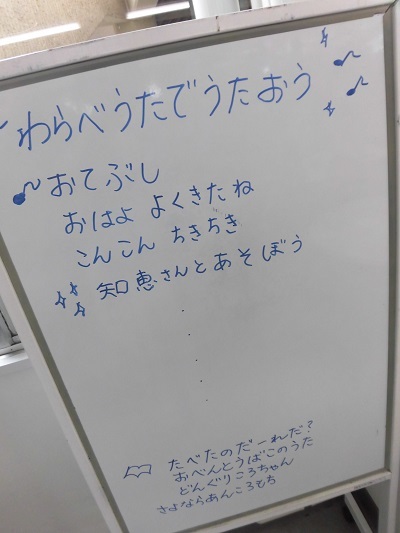 わらべうたでうたおう
おてぶし
おはよ よくきたね
こんこん ちきぢき
知恵さんとあそぼう
たべたのだーれだ?
おべんとうばこのうた
どんぐりころちゃん
さよならあんころもち